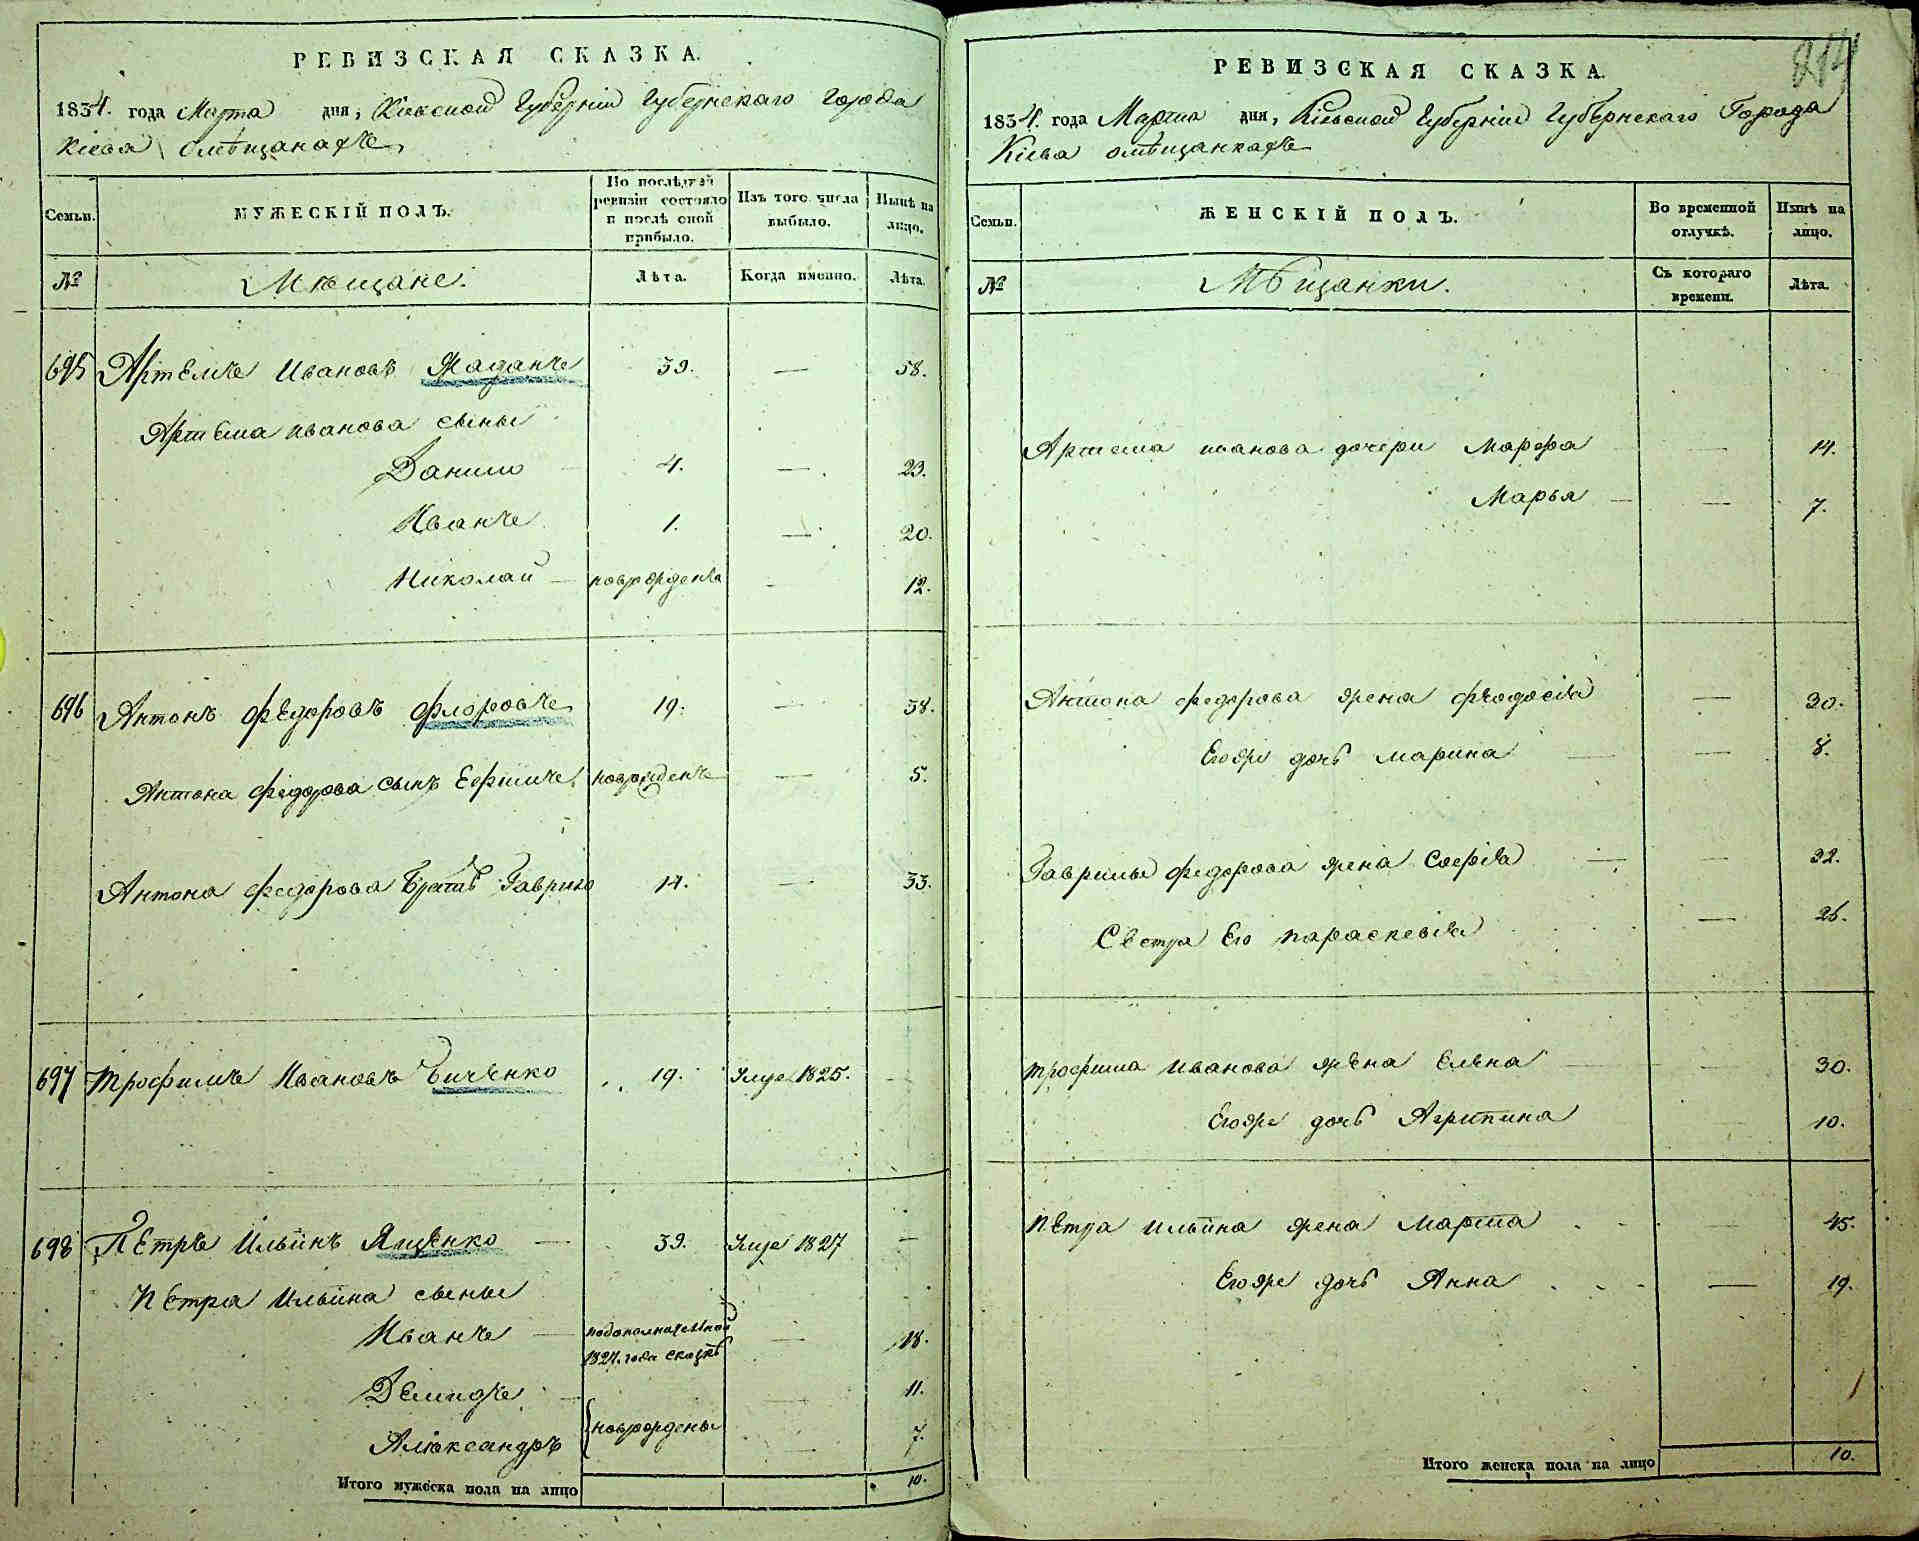 РЕВИЗСКАЯ СКАЗКА.
1834. года Марта дня, Кіевской Губерніи Губернскаго Города
Кіева омѣщанахъ
Семьи. МУЖЕСКІЙ ПОЛЪ. По послѣдней ревизіи состояло и послѣ оной прибыло. Изъ того числа выбыло. Нынѣ на лицо.
№ Мѣщане. Лѣта. Когда именно. Лѣта.
695 Артемъ Ивановъ Жаданъ 39. — 58.
Артема иванова сыны
Данило 4. — 23.
Иванъ 1. — 20.
Николай — новорожденъ — 12.
696 Антонъ Федоровъ Флоровъ 19. — 38.
Антона Федорова сынъ Ефимъ новорожденъ — 5.
Антона Федорова братъ Гаврило 14. — 33.
697 Трофимъ Ивановъ 19. 1825. —
698 Петръ Ильинъ Яценко — 39. 1827 —
Петра Ильина сыны
Иванъ — подополнительной 1827. года сказкѣ — 18.
Демидъ — 11.
Александръ новорожденые — 7.
Итого мужеска пола на лицо 10.
214
РЕВИЗСКАЯ СКАЗКА.
1834. года Марта дня, Кіевской Губерніи Губернскаго Города
Кіева омѣщанкахъ
Семьи. ЖЕНСКІЙ ПОЛЪ. Во временной отлучкѣ. Нынѣ на лицо.
№ Мѣщанки. Съ котораго времени. Лѣта.
Артема иванова дочери Марфа — 14.
Марья — — 7.
Антона Федорова жена Феодосія — 30.
Егоже дочь Марина — — 8.
Гаврилы федорова жена Софія — — 32.
Сестра Его параскевія — 26.
Трофима Иванова жена Елена — — 30.
Егоже дочь Агрипина — 10.
Петра Ильина жена Марта — 45.
Егоже дочь Анна — 19.
Итого женска пола на лицо 10.